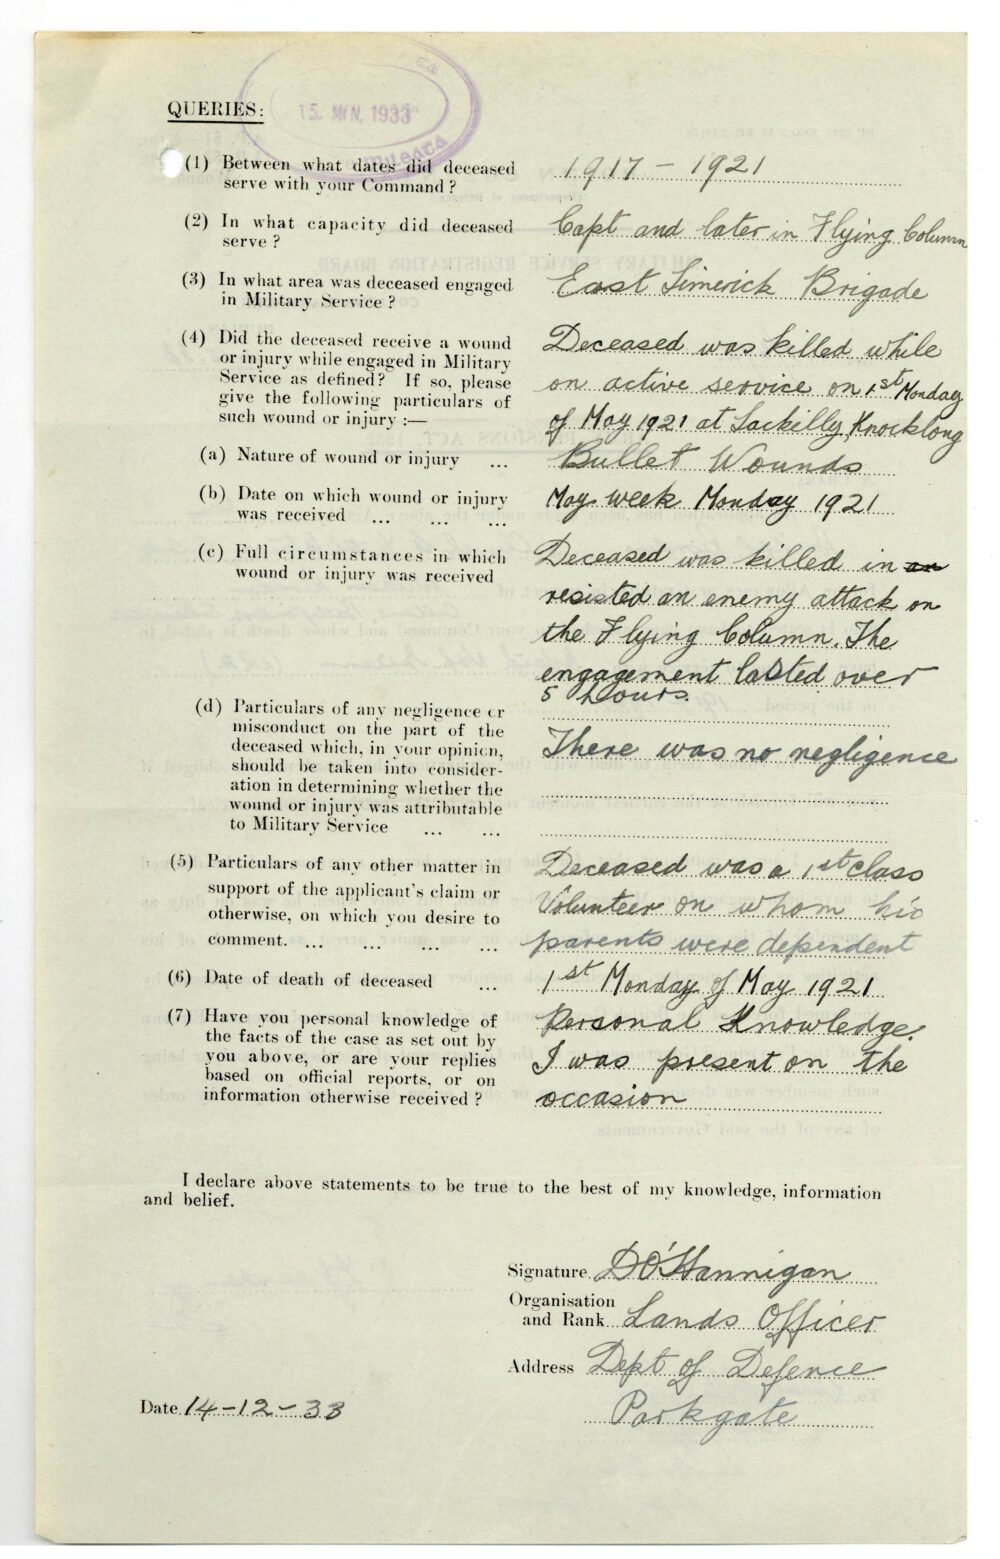 15. 1933
QUERIES:
(1) Between what dates did deceased
serve with your Command?
1917 – 1921
(2) In what capacity did deceased
serve?
Capt and later in Flying Column
(3) In what area was deceased engaged
in Military Service?
East Limerick Brigade
(4) Did the deceased receive a wound
or injury while engaged in Military
Service as defined? If so, please
give the following particulars of
such wound or injury :—
Deceased was killed while
on active service on 1st Monday
of May 1921 at Lackilly, Knocklong
(a) Nature of wound or injury ...
Bullet Wounds
(b) Date on which wound or injury
was received ... ... ...
May week Monday 1921
(c) Full circumstances in which
wound or injury was received
Deceased was killed in an
resisted an enemy attack on
the Flying Column. The
engagement lasted over
5 hours.
(d) Particulars of any negligence or
misconduct on the part of the
deceased which, in your opinion,
should be taken into consider-
ation in determining whether the
wound or injury was attributable
to Military Service ... ...
There was no negligence
(5) Particulars of any other matter in
support of the applicant's claim or
otherwise, on which you desire to
comment. ... ... ... ...
Deceased was a 1st class
Volunteer on whom his
parents were dependent
(6) Date of death of deceased ...
1st Monday of May 1921
(7) Have you personal knowledge of
the facts of the case as set out by
you above, or are your replies
based on official reports, or on
information otherwise received?
Personal Knowledge.
I was present on the
occasion
I declare above statements to be true to the best of my knowledge, information
and belief.
Signature D O'Hannigan
Organisation
and Rank Lands Officer
Address Dept of Defence
Parkgate
Date 14-12-33